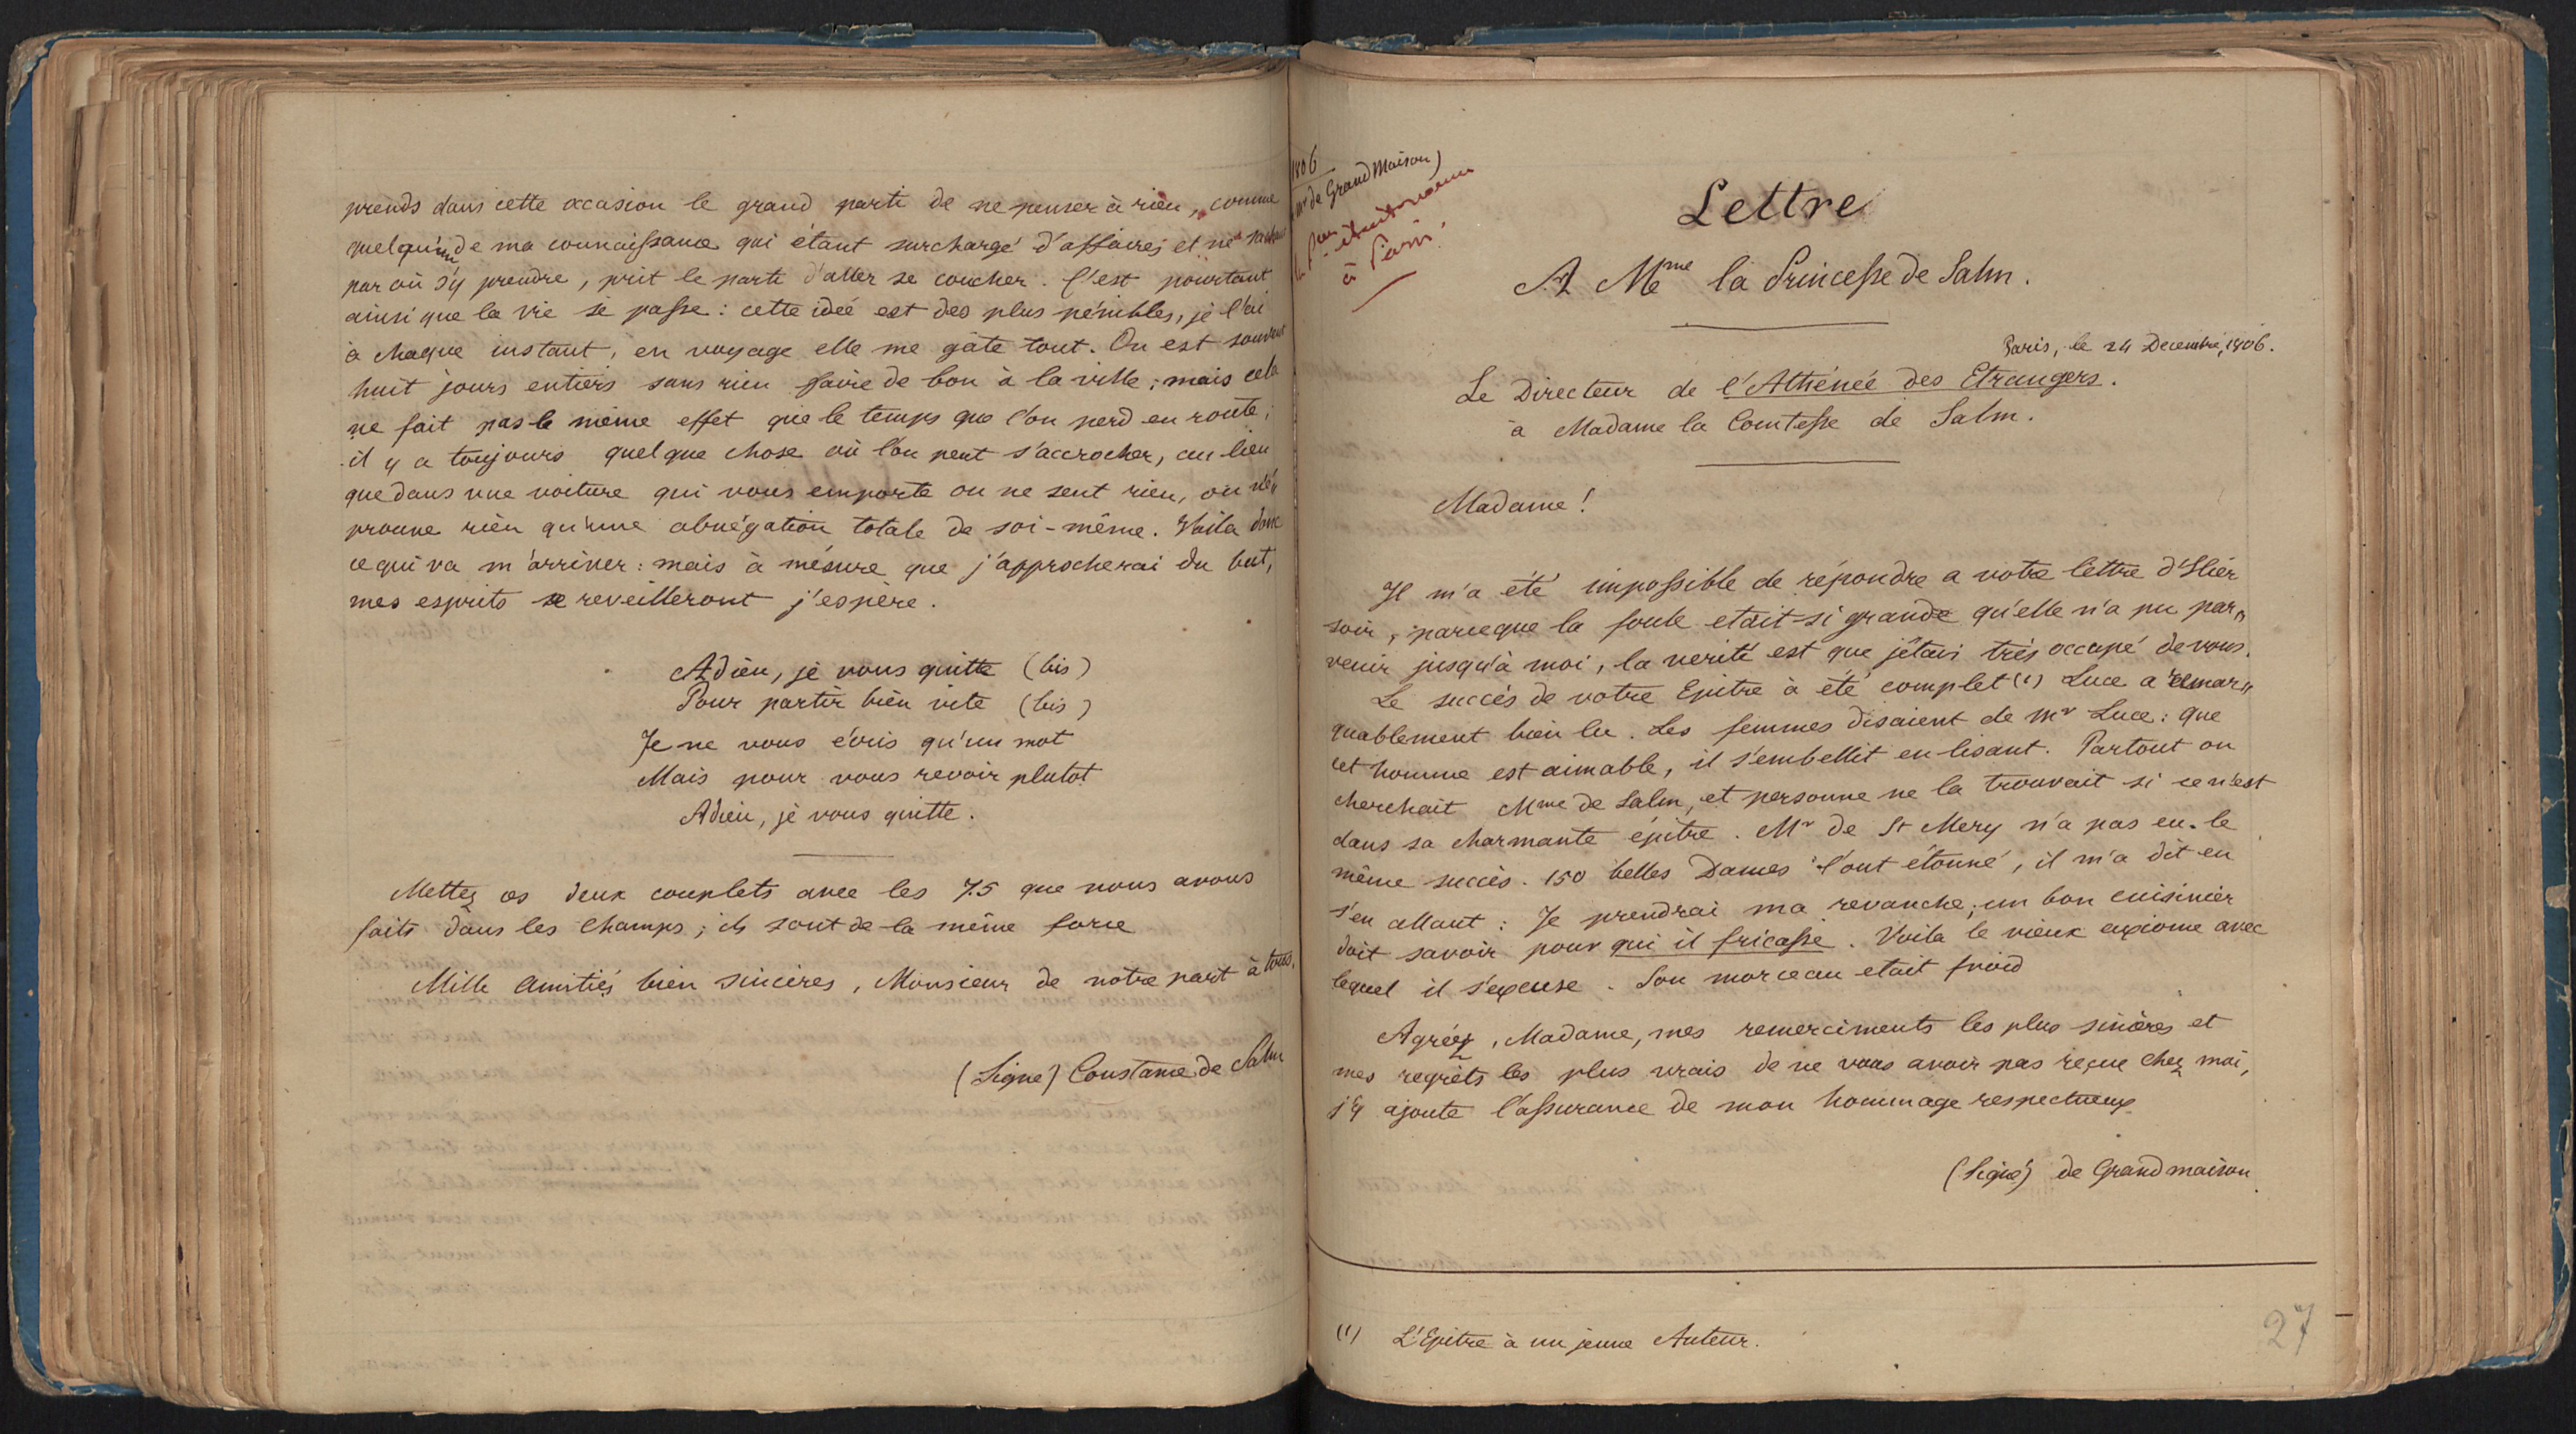 prends dans cette occasion le grand parti de ne penser à rien, comme
quelqu'un de ma connaissance qui étant surchargé d'affaires et ne sachant
par où s'y prendre, prit le parti d'aller se coucher. C'est pourtant
ainsi que la vie se passe : cette idée est des plus pénibles, je l'ai
à chaque instant, en voyage elle me gâte tout. On est souvent
huit jours entiers sans rien faire de bon à la ville ; mais cela
ne fait pas le même effet que le temps que l'on perd en route,
il y a toujours quelque chose où l'on peut s'accrocher, au lieu
que dans une voiture qui vous emporte on ne sent rien, on n'é„
prouve rien qu'une abnégation totale de soi-même. Voila donc
ce qui va m'arriver : mais à mésure que j'approcherai du but,
mes esprits se reveilleront j'espère.
Adieu, je vous quitte (bis)
Pour partir bien vite (bis)
Je ne vous écris qu'un mot
Mais pour vous revoir plutot
Adieu, je vous quitte.
Mettez ces deux couplets avec les 75 que nous avons
faits dans les champs ; ils sont de la même force
Mille amitiés bien sincères, Monsieur de notre part à tous.
(Signé) Constance de Salm
1806
mr de Grand Maison)
la Pcesse était
à Paris.
Lettre
A Mme la Princesse de Salm.
Paris, le 24 Decembre, 1806.
Le Directeur de l'Athénée des Etrangers.
à Madame la Comtesse de Salm.
Madame !
Il m'a été impossible de répondre a votre lettre d'Hier
soir, parceque la foule etait si grande qu'elle n'a pu par„
venir jusqu'à moi, la verité est que j'étais très occupé de vous.
Le succès de votre Epitre à été complet (1) Luce a remar„
quablement bien lu. Les femmes disaient de mr Luce : que
cet homme est aimable, il s'embellit en lisant. Partout on
cherchait Mme de Salm, et personne ne la trouvait si ce n'est
dans sa charmante épitre. Mr de St Mery n'a pas eu le
même succès. 150 belles Dames l'ont étonné, il m'a dit en
s'en allant : Je prendrai ma revanche ; un bon cuisinier
doit savoir pour qui il fricasse. Voila le vieux axiome avec
lequel il s'excuse. Son morceau etait froid
Agréez, Madame, mes remerciments les plus sincères et
mes regrêts les plus vrais de ne vous avoir pas reçue chez moi,
j'y ajoute l'assurance de mon hommage respectueux
(Signé) de Grandmaison.
(1) L'Epitre à un jeune Auteur.
27